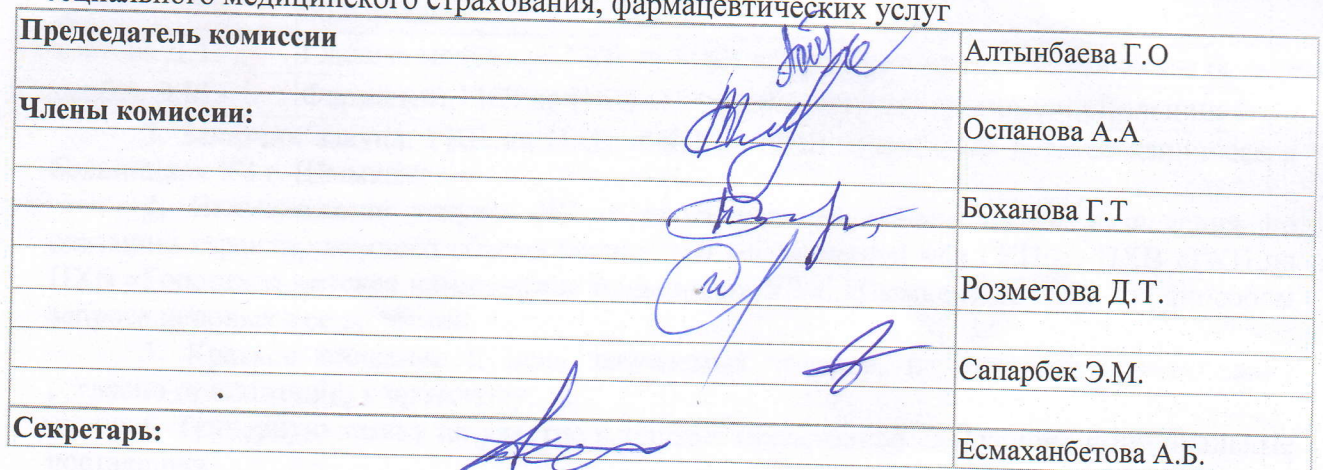 социального медицинского страхования, фармацевтических услуг
Председатель комиссии Алтынбаева Г.О
Члены комиссии: Оспанова А.А
Боханова Г.Т
Розметова Д.Т.
Сапарбек Э.М.
Секретарь: Есмаханбетова А.Б.